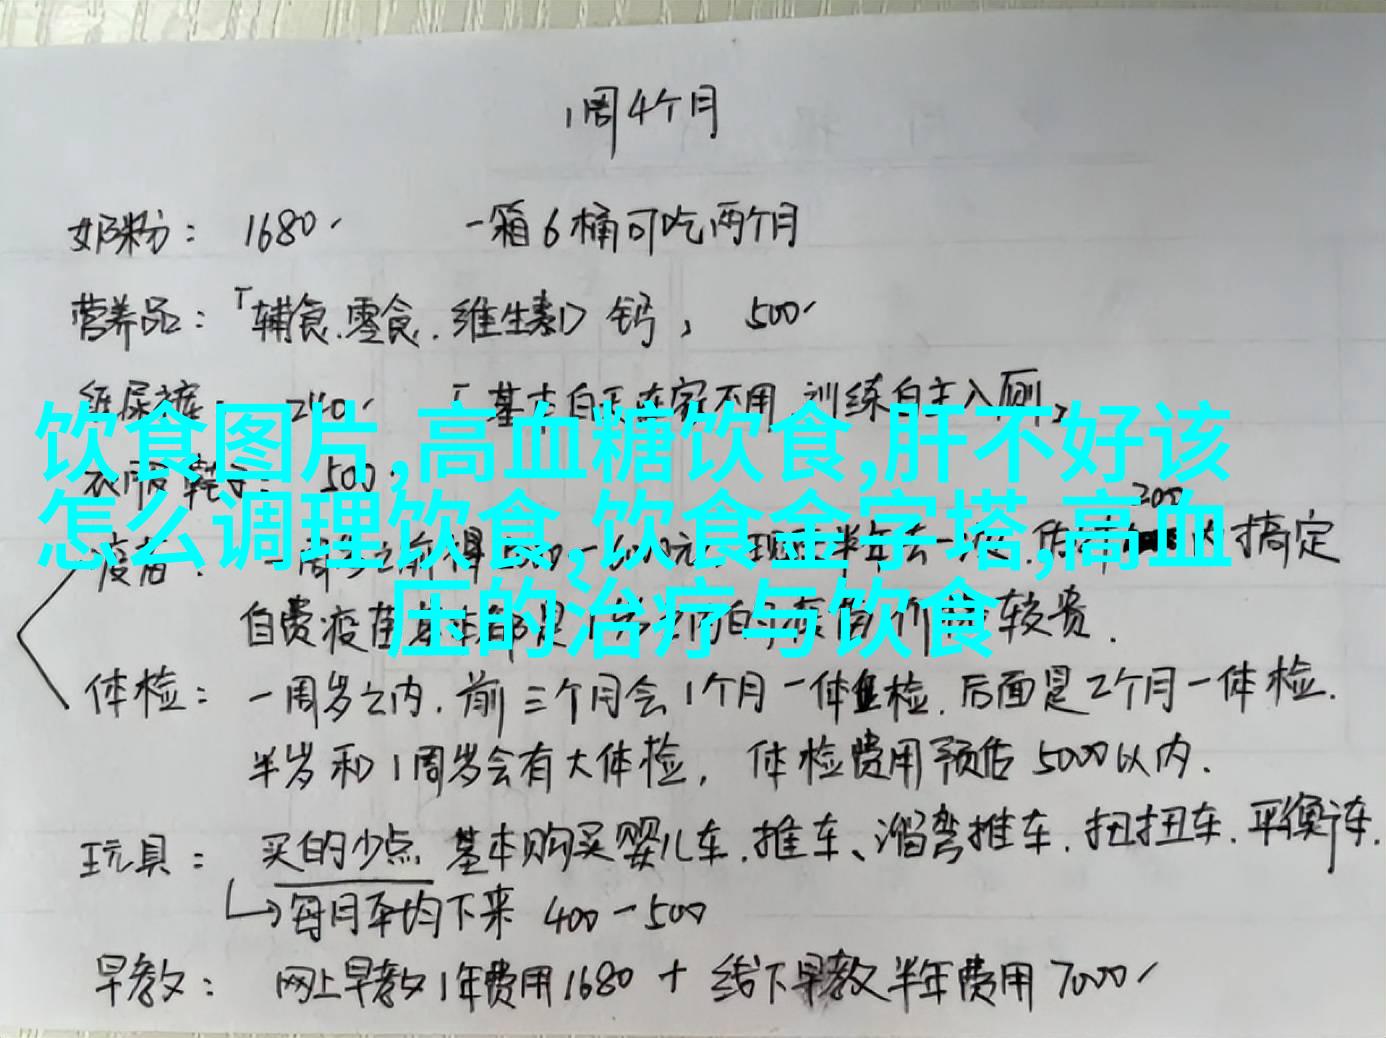 1周4个月
奶粉: 1680 一箱6桶可吃两个月
营养品:「辅食.零食.维生素D 钙, 500
纸尿裤: 240 「基本白天在家不用,训练自主入厕」
饮食图片,高血糖饮食,肝不好该
衣服鞋子: 500
怎么调理饮食,饮食金字塔,高血
200
疫苗: 一周岁之前得 元 现在半年会一次 搞定
压的治疗与饮食
自费疫苗基本都是1 较贵.
体检: 一周岁之内.前三个月会1个月一体检.后面是2个月一体检.
半岁和1周岁会有大体检, 体检费用预估5000以内.
玩具: 买的少点 基本购买婴儿车.推车、溜弯推车.扭扭车.平衡车.
→每月平均下来 400-500
早教: 网上早教1年费用1680+线下早教半年费用7000